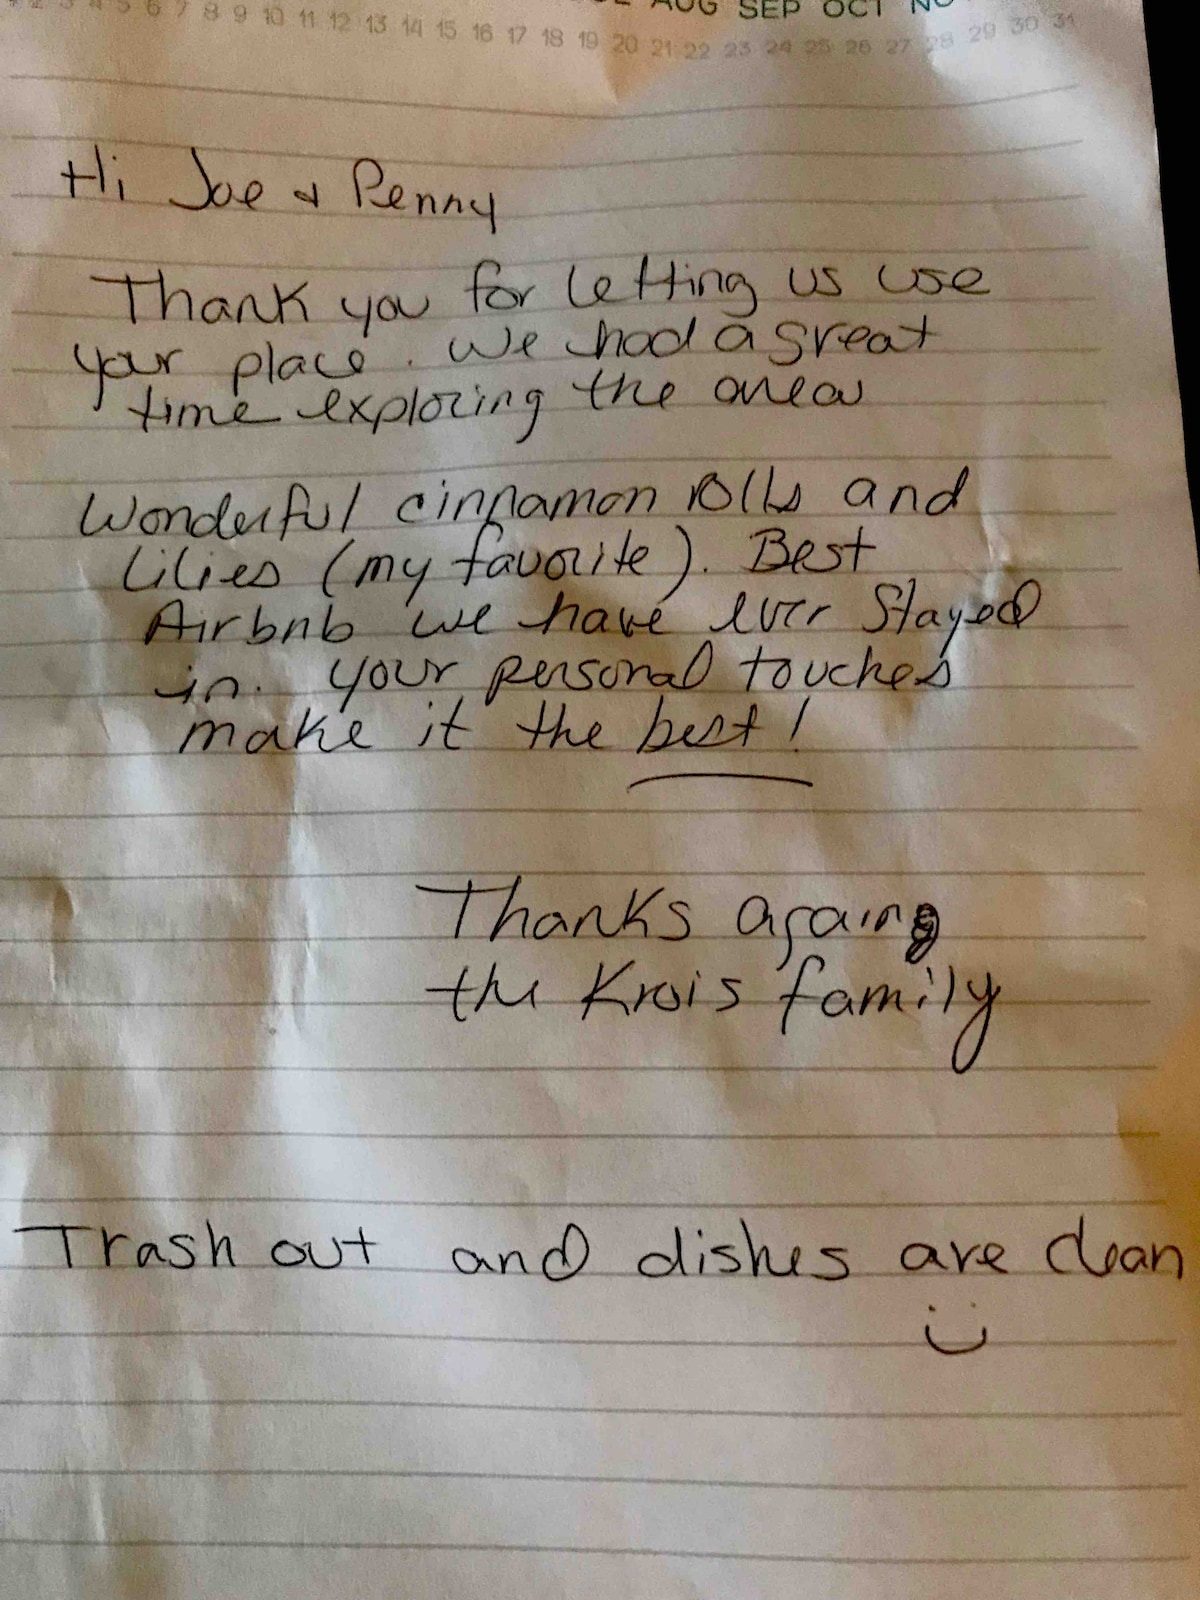 AUG SEP OCT NO
5 6 7 8 9 10 11 12 13 14 15 16 17 18 19 20 21 22 23 24 25 26 27 28 29 30 31
Hi Joe & Penny
Thank you for letting us use
your place. We had a great
time exploring the area
Wonderful cinnamon rolls and
Lilies (my favorite). Best
Airbnb we have ever stayed
in. your personal touches
make it the best!
Thanks again
the Krois family
Trash out and dishes are clean